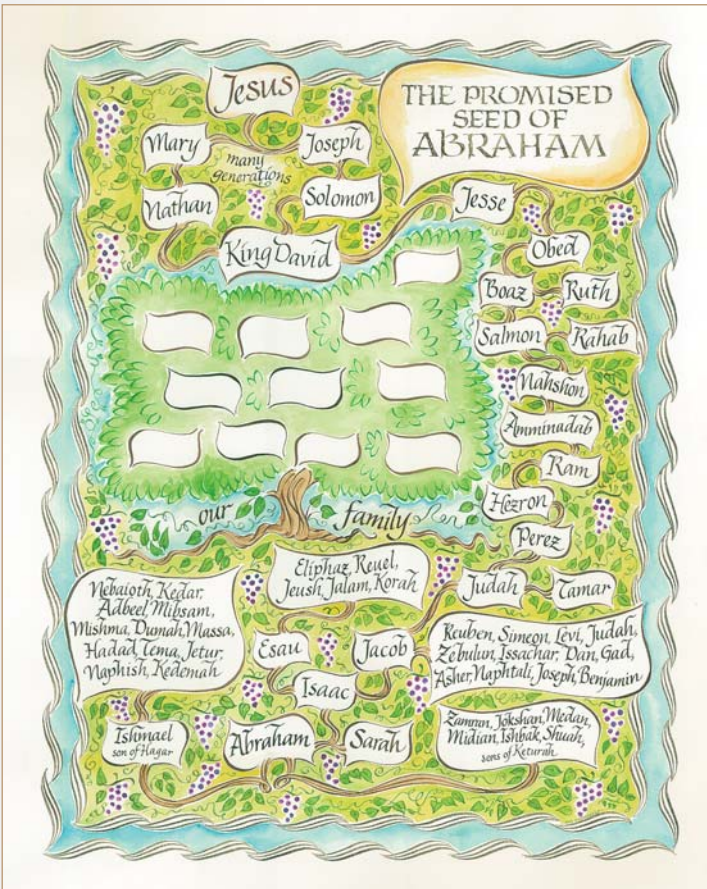 Jesus
THE PROMISED
SEED OF
ABRAHAM
Mary
Joseph
many
generations
Nathan
Solomon
Jesse
King David
Obed
Boaz
Ruth
Salmon
Rahab
Nahshon
Amminadab
Ram
Hezron
Perez
our family
Eliphaz, Reuel,
Jeush, Jalam, Korah
Judah
Tamar
Nebaioth, Kedar,
Adbeel, Mibsam,
Mishma, Dumah, Massa,
Hadad, Tema, Jetur,
Naphish, Kedemah
Esau
Jacob
Reuben, Simeon, Levi, Judah,
Zebulun, Issachar, Dan, Gad,
Asher, Naphtali, Joseph, Benjamin
Isaac
Ishmael
son of Hagar
Abraham
Sarah
Zamran, Jokshan, Medan,
Midian, Ishbak, Shuah,
sons of Keturah